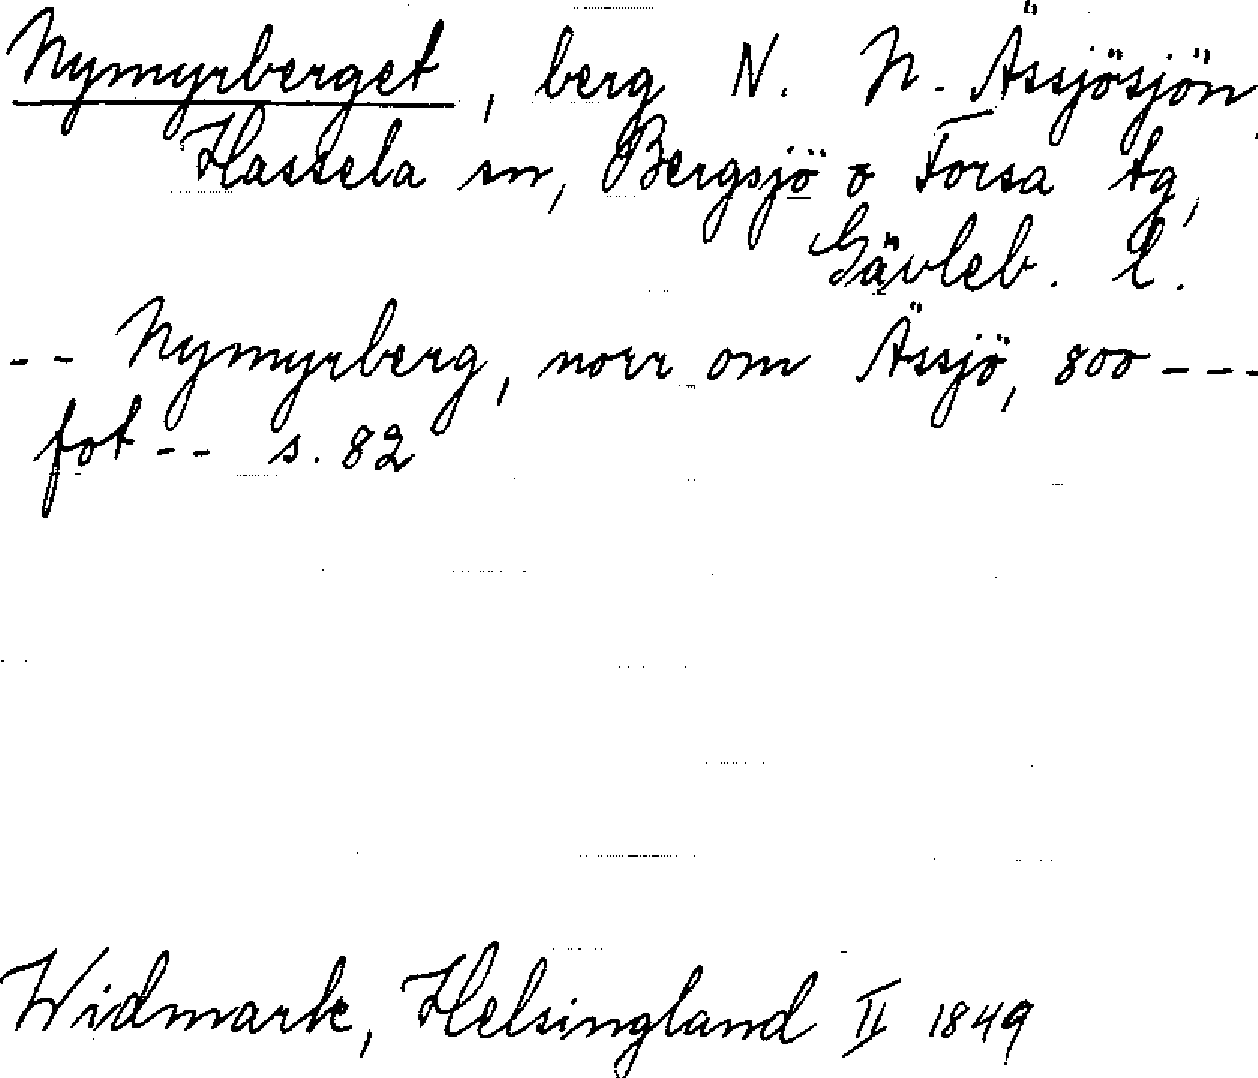 Nymyrberget, berg N. N. Ässjösjön,
Hassela sn, Bergsjö o Forsa tg,
Gävleb. l.
-- Nymyrberg, norr om Ässjö, 800 ---
fot -- s. 82
Widmark, Helsingland II 1849